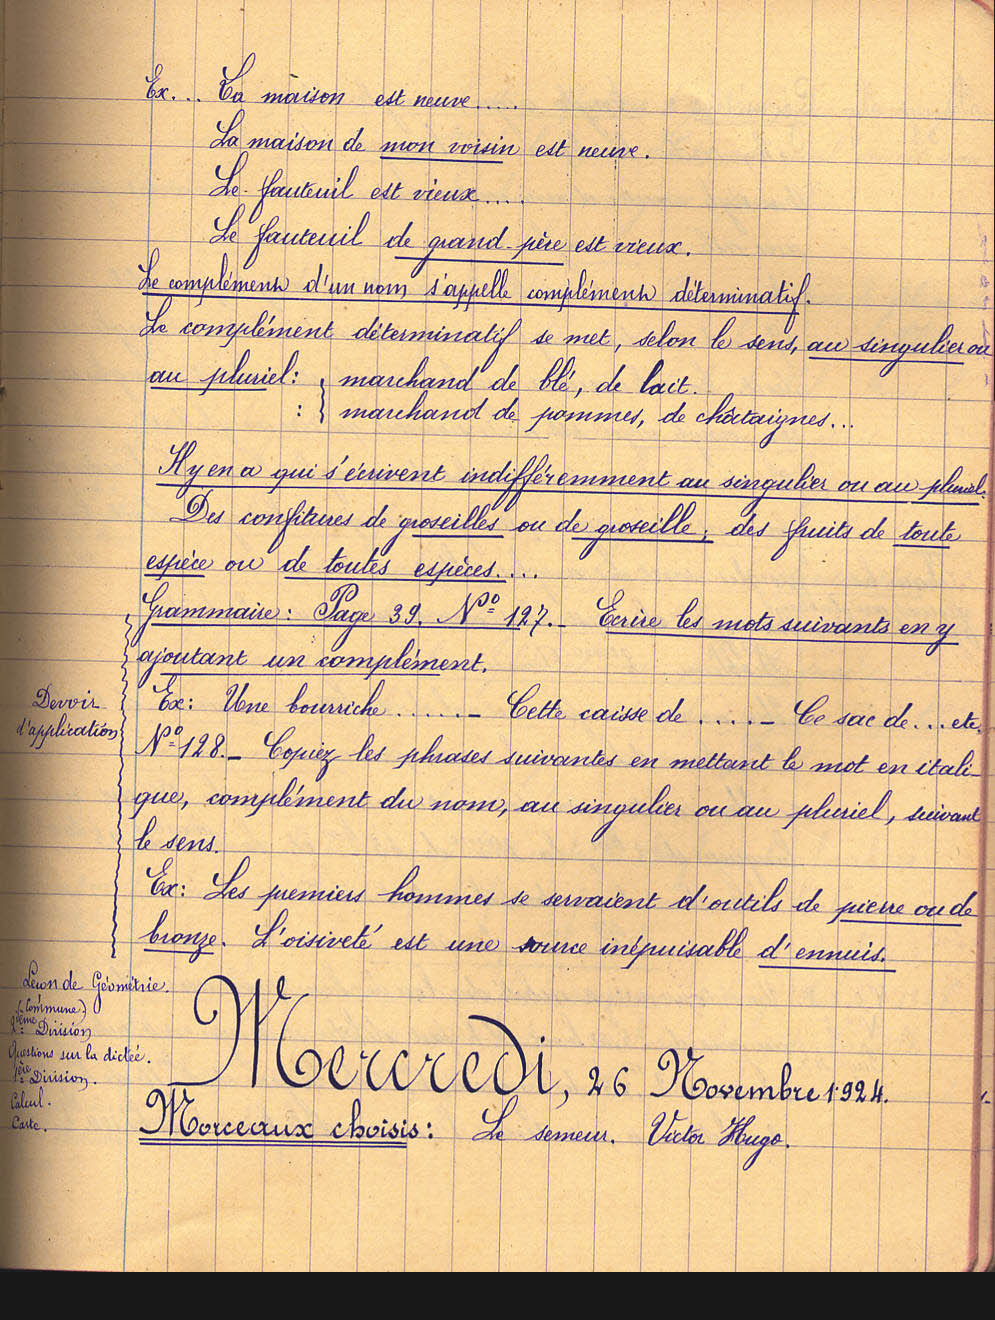 Ex... La maison est neuve.....
La maison de mon voisin est neuve.
Le fauteuil est vieux....
Le fauteuil de grand-père est vieux.
Le complément d'un nom s'appelle complément déterminatif.
Le complément déterminatif se met, selon le sens, au singulier ou
au pluriel: { marchand de blé, de lait.
: { marchand de pommes, de châtaignes...
Il y en a qui s'écrivent indifféremment au singulier ou au pluriel.
Des confitures de groseilles ou de groseille; des fruits de toute
espèce ou de toutes espèces....
Grammaire: Page 39. Nº 127.- Ecrire les mots suivants en y
ajoutant un complément.
Devoir
d'application
Ex: Une bourriche ......- Cette caisse de .....- Ce sac de... etc.
Nº 128.- Copiez les phrases suivantes en mettant le mot en itali-
que, complément du nom, au singulier ou au pluriel, suivant
le sens.
Ex: Les premiers hommes se servaient d'outils de pierre ou de
bronze. L'oisiveté est une source inépuisable d'ennuis.
Leçon de Géométrie.
(Commune)
2ème Division
Questions sur la dictée.
1ère Division.
Calcul.
Carte.
Mercredi, 26 Novembre 1924.
Morceaux choisis: Le semeur. Victor Hugo.